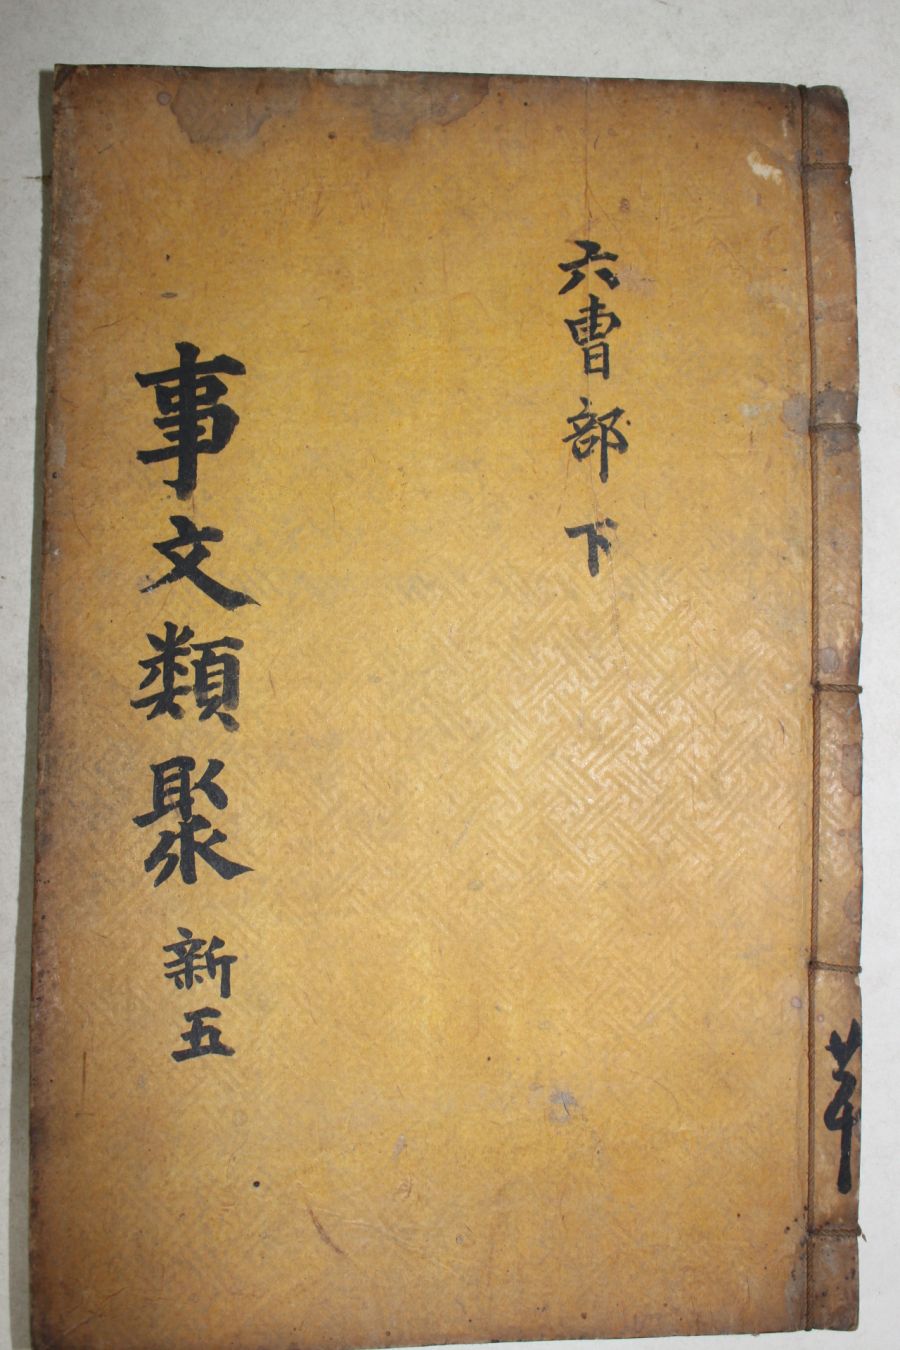 六曺部下
事文類聚 新五